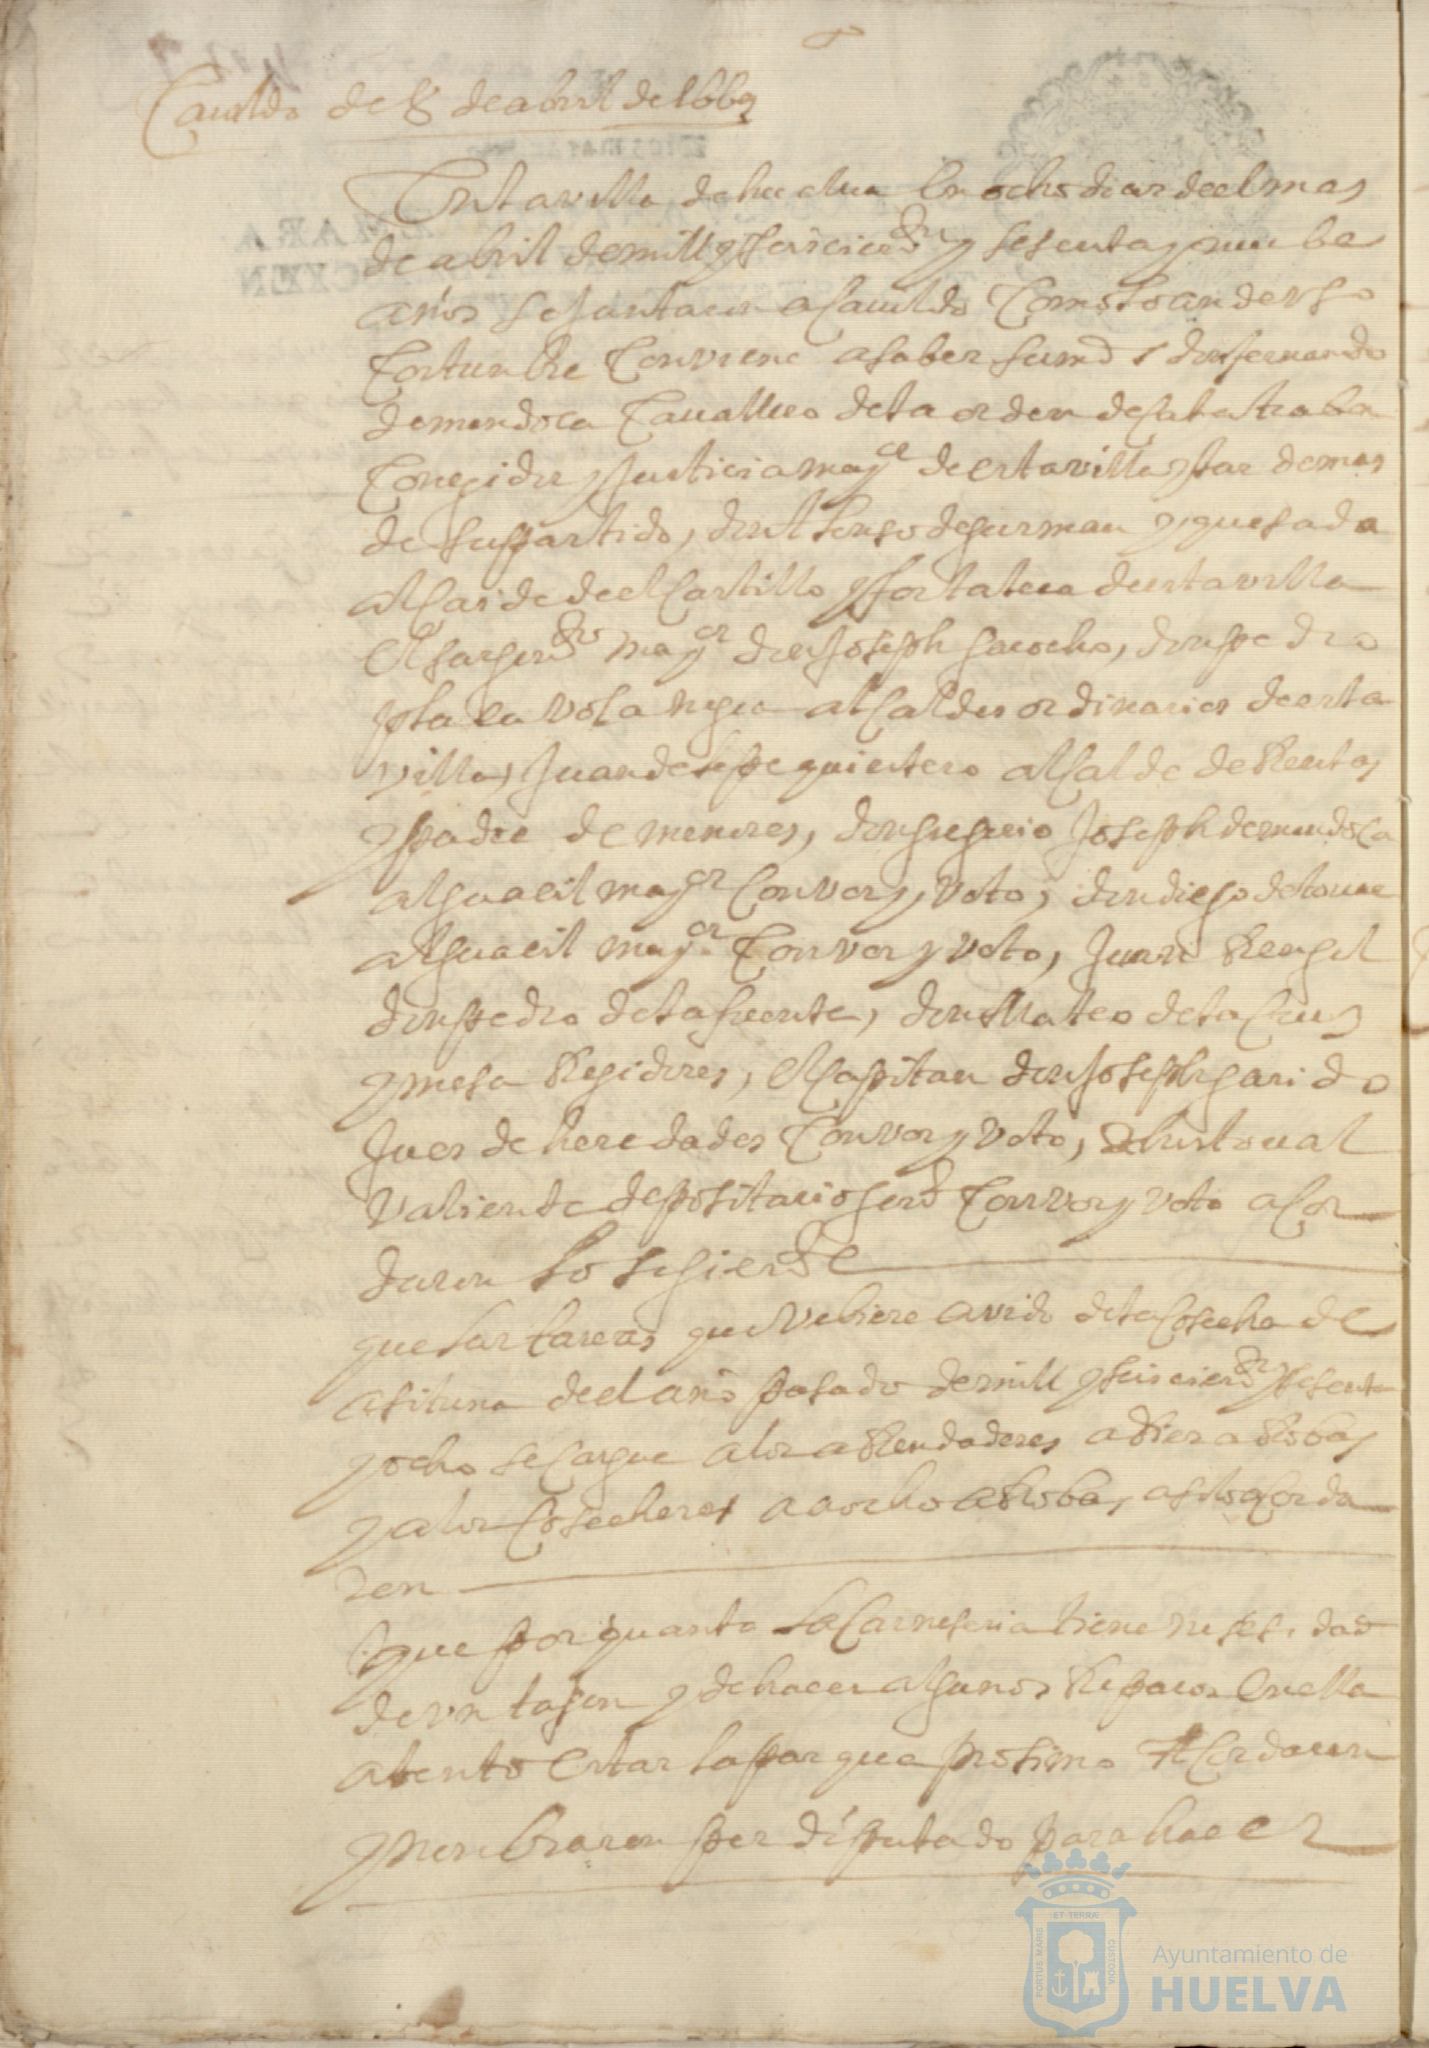 Cauildo de 8 de abril de 1669
En la villa de huelua en ocho dias de el mes
de abril de mill y seiscientos y sesenta y nuebe
años se Juntaron a Cauildo Como lo an de vso
Costumbre Conviene a saber su md s don fernando
de mendoca Cauallero de la orden de Calatraba
Coregidor y Justicia mayor de esta villa y las demas
de su partido, don Alonso de gusman y quesada
alCaide de el Castillo y fortalesa de esta villa
el sargento mayor don Joseph garocho, don pedro
alCaldes ordinarios de esta
villa, Juan de lepe quintero alCalde de Rentas
y padre de menores, don gregorio Joseph de mendoca
alguacil mayor Con vos y voto, don diego de toue
alguacil mayor Con vos y voto, Juan Rengel
don pedro de la fuente, don Mateo de la Crus
y mesa Regidores, el Capitan don Joseph garido
Jues de heredades Con vos y voto, Christoual
Valiente depositario gerl Con vos y voto aCor
daron lo sigiente
que las tareas que Vbiere avido de la Cosecha de
asituna de el año pasado de mill y seiscientos y sesenta
y ocho se Cargue a los aRendadores a dies aRobas
y a los Cosecheros a ocho aRobas, asi lo aCorda
ron
que por quanto la Carneseria tiene nesesidad
de vn tajon y de hacer algunos Reparos en ella
atento estar la pasqua prosima ACordaron
y nonbraron por diputado para hacer
ET TERRÆ
PORTUS MARIS
CUSTODIA
Ayuntamiento de
HUELVA